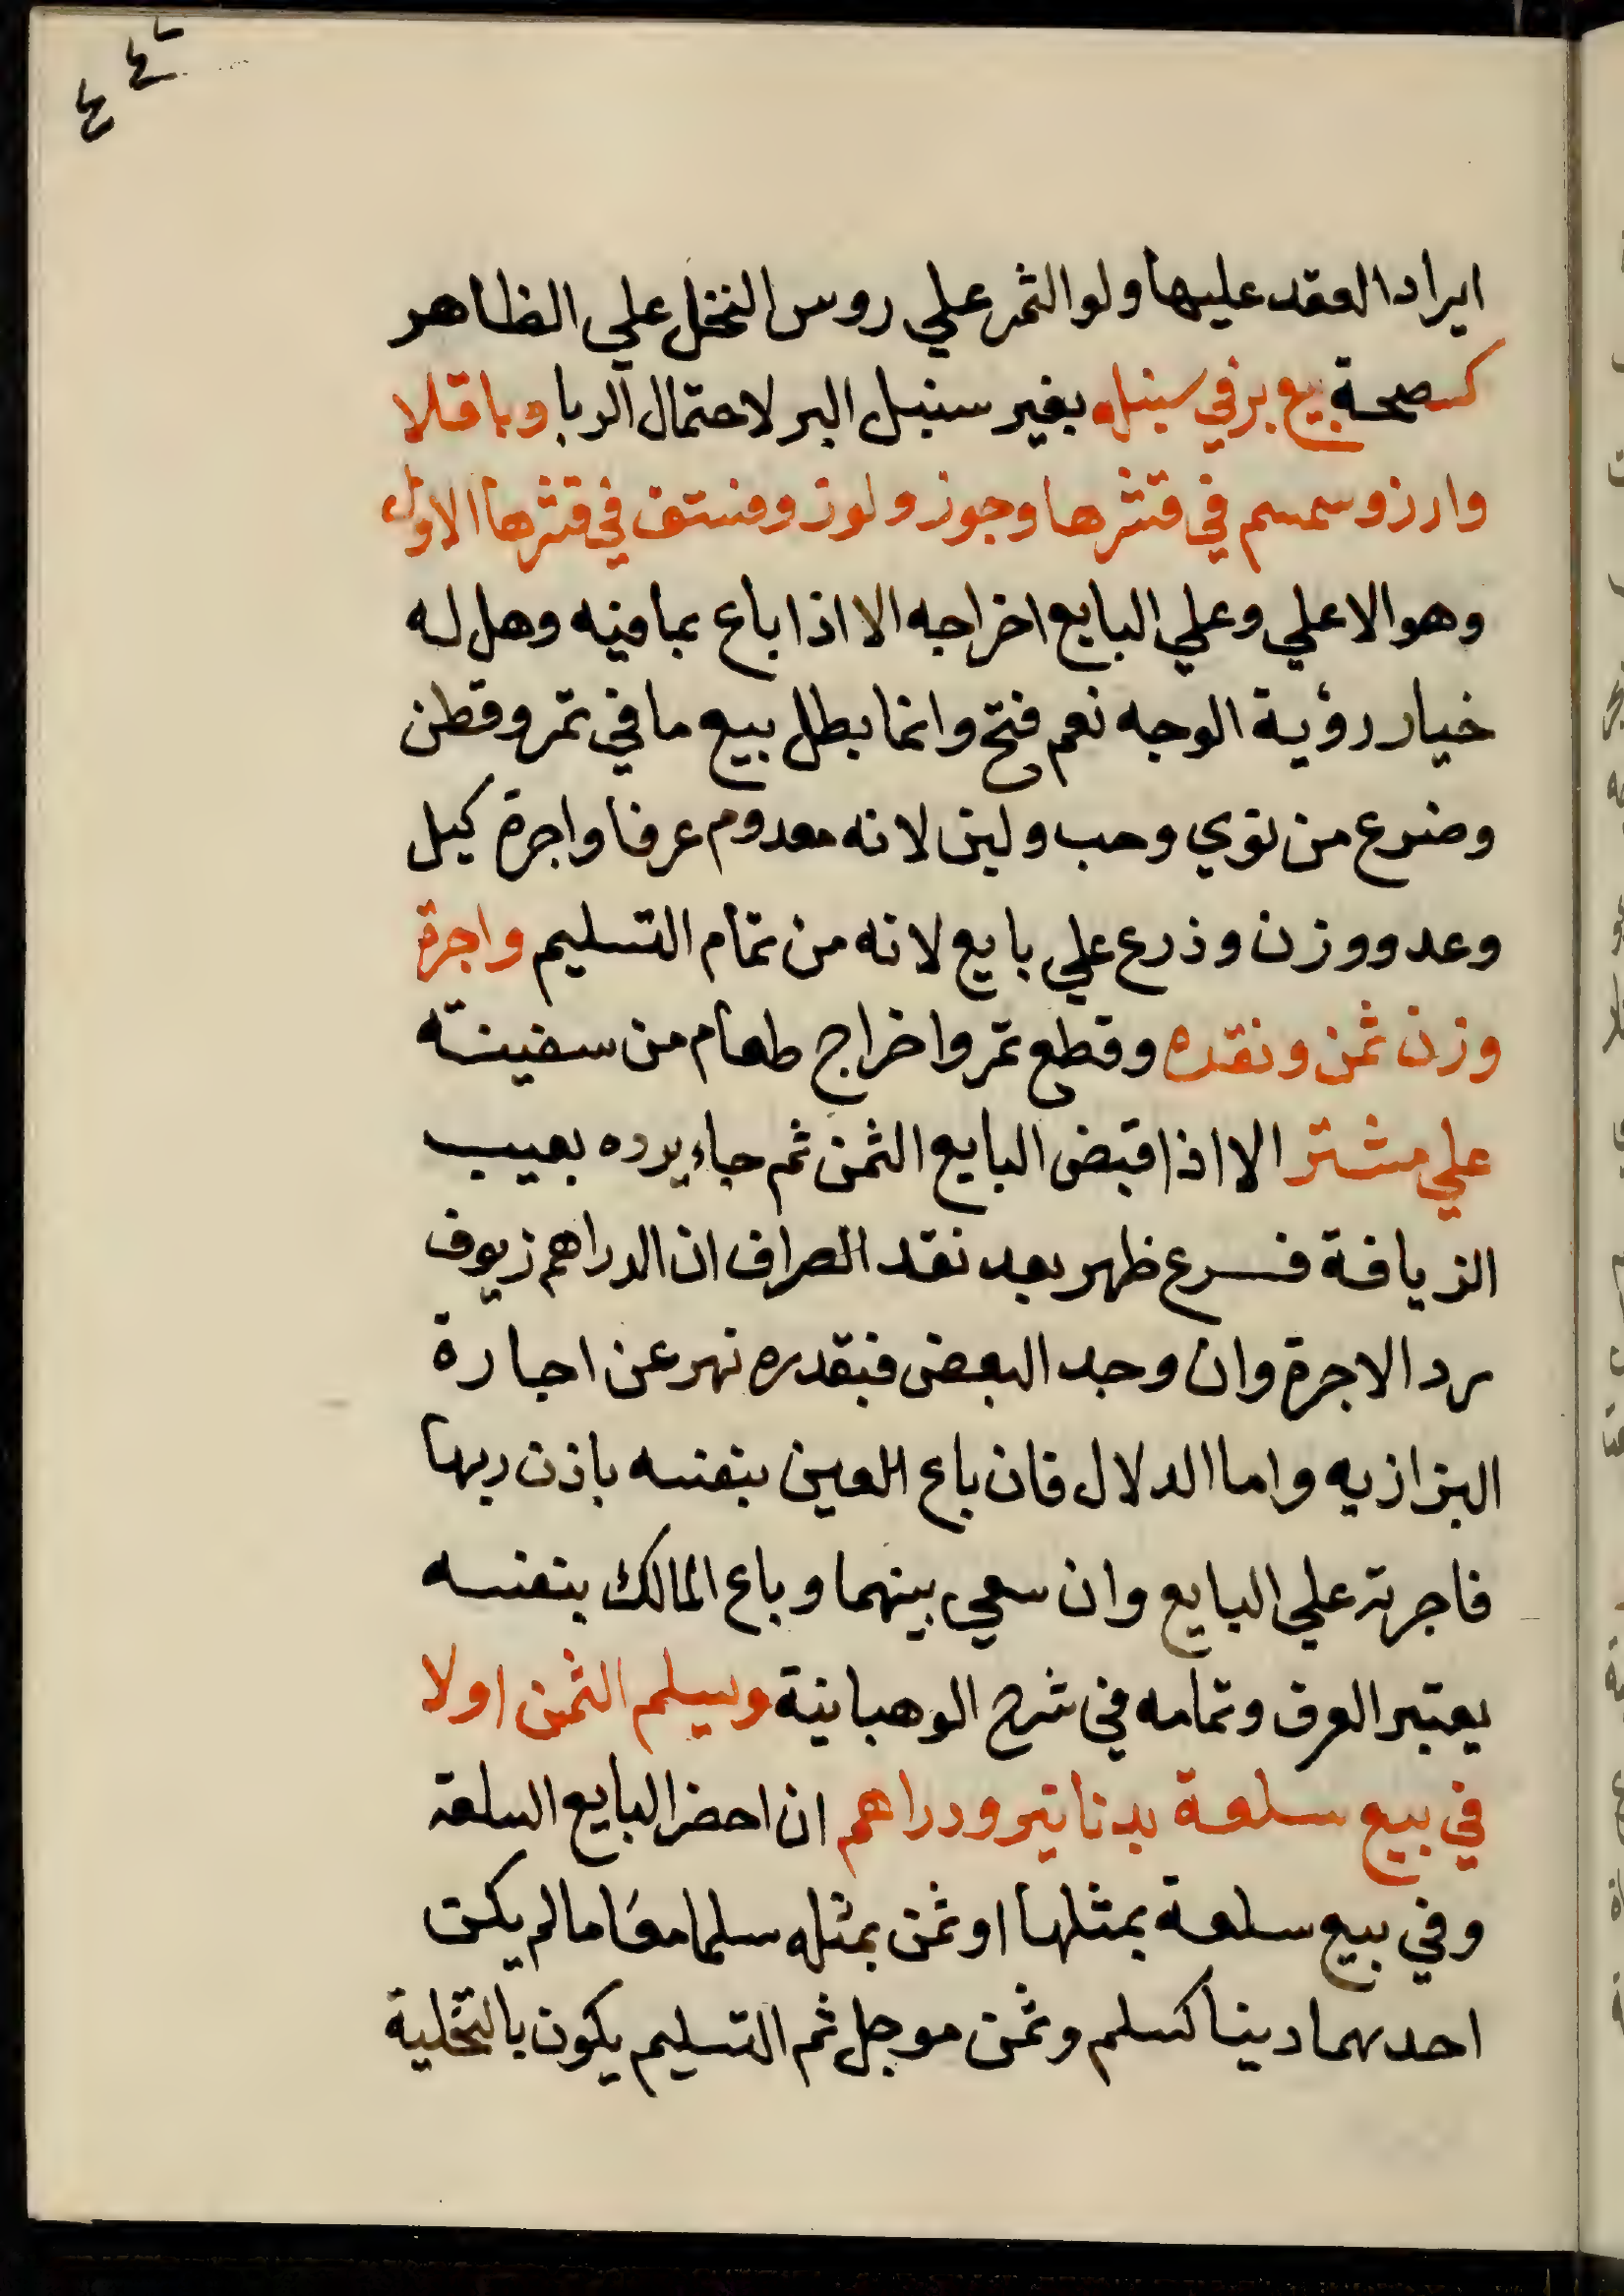 ٤٤
ايراد العقد عليها ولو الثمر علي روس النخل علي الظاهر
كصحة بيع بر في سنبله بغير سنبل البر لاحتمال الربا وباقلا
وارز وسمسم في قشرها وجوز ولوز وفستق في قشرها الاول
وهو الاعلي وعلي البايع اخراجه الا اذا باع بما فيه وهل له
خيار رؤية الوجه نعم فتح وانما بطل بيع ما في تمر وقطن
وضرع من نوي وحب ولبن لانه معدوم عرفا واجرة كيل
وعد ووزن وذرع علي بايع لانه من تمام التسليم واجرة
وزن ثمن ونقده وقطع تمر واخراج طعام من سفينته
علي مشتر الا اذا قبض البايع الثمن ثم جاء يرده بعيب
الزيافة فرع ظهر بعد نقد الصراف ان الدراهم زيوف
رد الاجرة وان وجد البعض فبقدره نهر عن اجارة
البزازيه واما الدلال فان باع العين بنفسه باذن ربها
فاجرته علي البايع وان سعي بينهما وباع المالك بنفسه
يعتبر العرف وتمامه في شرح الوهبانية ويسلم الثمن اولا
في بيع سلعة بدنانير ودراهم ان احضر البايع السلعة
وفي بيع سلعة بمثلها او ثمن بمثله سلما معا ما لم يكن
احدهما دينا كسلم وثمن موجل ثم التسليم يكون بالتخلية